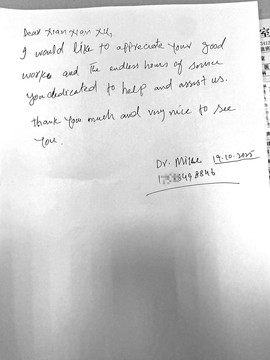 Dear Xian Xian Xu,
I would like to appreciate your good
work and the endless hours of service
you dedicated to help and assist us.
Thank you much and very nice to see
you.
Dr. Mike 19.10.2025